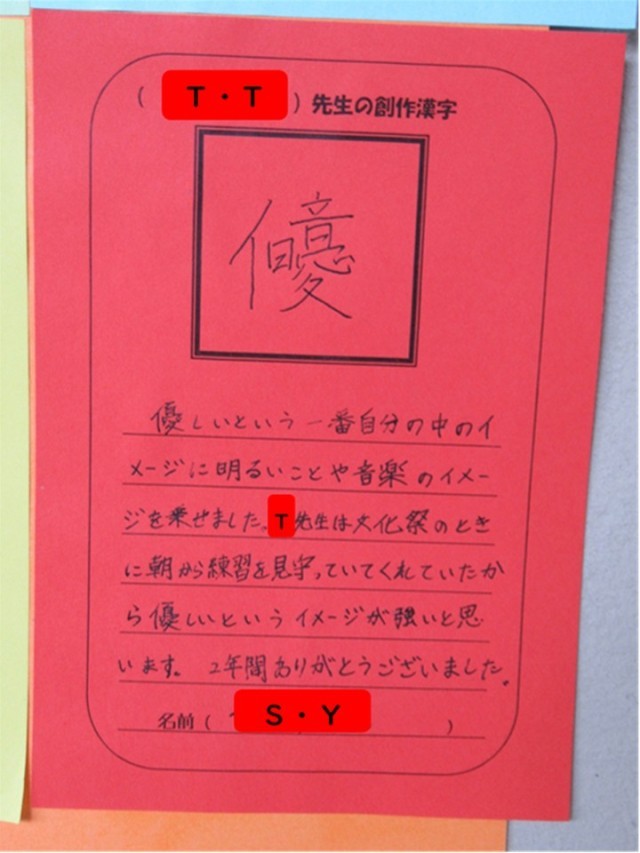 ( T・T ) 先生の創作漢字
優しいという一番自分の中のイ
メージに明るいことや音楽のイメー
ジを乗せました。T先生は文化祭のとき
に朝から練習を見守っていてくれていたか
ら優しいというイメージが強いと思
います。 2年間ありがとうございました。
名前 ( S・Y )